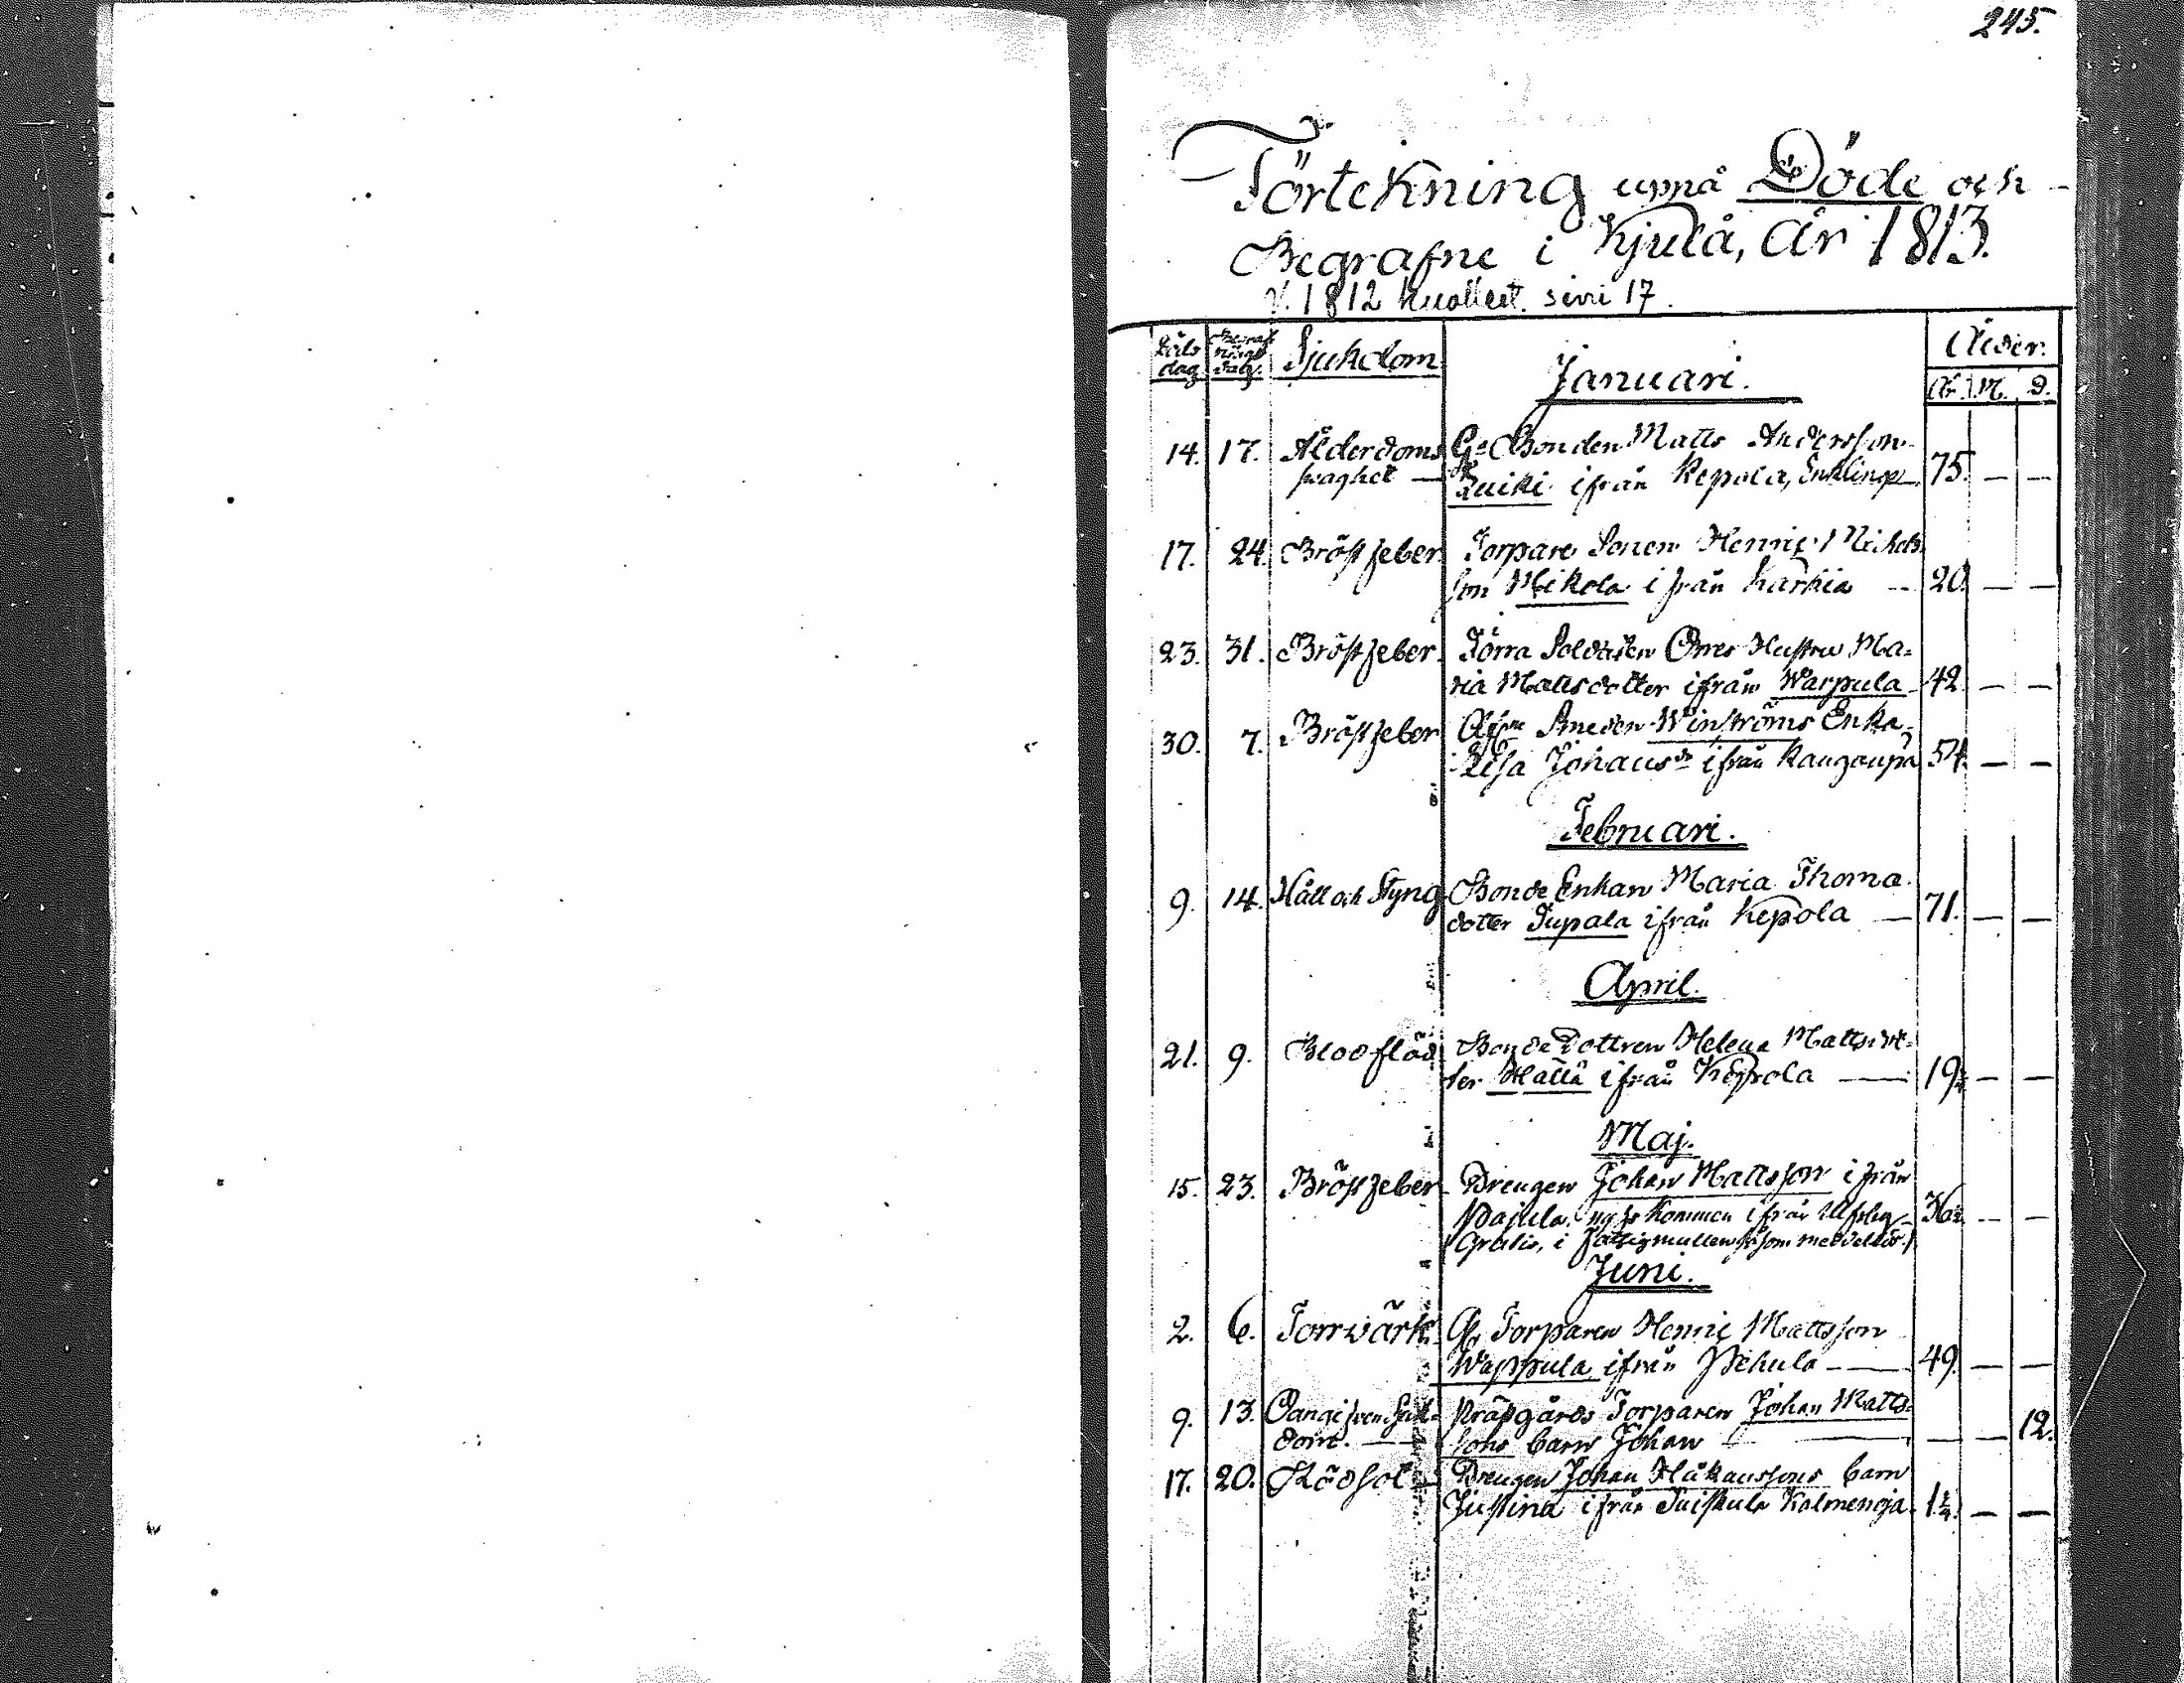 245.
Förtekning uppå Döde och
Begrafne i Kjulå, År 1813.
V. 1812 kuolleet. sivu 17.
Döds dag. Begraf nings dag. Sjukdom Januari. Ålder.
År. M. D.
14. 17. Ålderdoms G: Bonden Matts Andersson
svaghet — ifrån Kepola, Enkling — 75. — —
17. 24. Bröstfeber Torpare Sonen Henric Michels
son Mikola ifrån Karhia — 20. — —
23. 31. Bröstfeber Förra Soldaten Orres Hustru Ma=
ria Mattsdotter ifrån Warpula 42 — —
30. 7. Bröstfeber Smeden Winströms Enka,
Lisa Johansdr ifrån 54. — —
Februari.
9. 14. Håll och Styng Bonde Enkan Maria Thoma
dotter Tupala ifrån Kepola — 71. — —
April.
21. 9. Blodflöd Bonde Dottren Helena Mattsdot=
ter ifrån Kepola — 19 — —
Maj.
15. 23. Bröstfeber Drengen Johan Mattsson ifrån
Pajula, kommen ifrån 36 — —
Gratis, i som medellös
Juni.
2. 6. Torrvärk G. Torparen Henric Mattsson
Wappula ifrån — 49. — —
9. 13. Oangifven Sjuk=
dom. — Präpgårds Torparen Johan Matts=
sons barn Johan — — — 12.
17. 20. Rödsot Drengen Johan Håkanssons barn
Justina ifrån Tuiskula Kolmenoja. 1½ — —